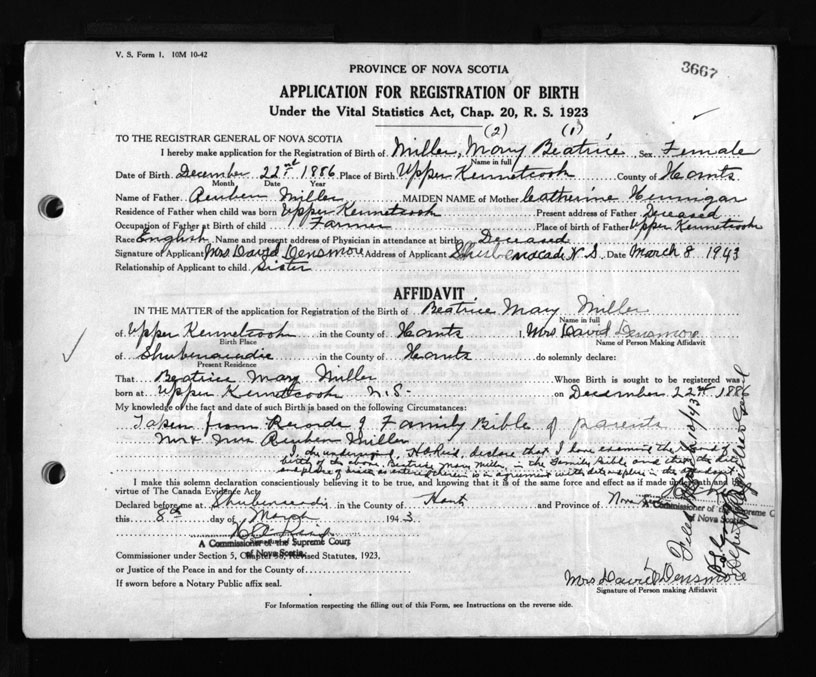 V. S. Form 1. 10M 10-42
3667
PROVINCE OF NOVA SCOTIA
APPLICATION FOR REGISTRATION OF BIRTH
Under the Vital Statistics Act, Chap. 20, R. S. 1923
(2) (1)
TO THE REGISTRAR GENERAL OF NOVA SCOTIA
I hereby make application for the Registration of Birth of Miller, Mary Beatrice Sex Female
Name in full
Date of Birth December 22nd 1886 Place of Birth Upper Kennetcook County of Hants
Month Date Year
Name of Father Reuben Miller MAIDEN NAME of Mother Catherine Hennigar
Residence of Father when child was born Upper Kennetcook Present address of Father Deceased
Occupation of Father at Birth of child Farmer Place of birth of Father Upper Kennetcook
Race English Name and present address of Physician in attendance at birth Deceased
Signature of Applicant Mrs David Densmore Address of Applicant Shubenacadie N.S. Date March 8 1943
Relationship of Applicant to child Sister
AFFIDAVIT
IN THE MATTER of the application for Registration of the Birth of Beatrice Mary Miller
Name in full
of Upper Kennetcook in the County of Hants I, Mrs David Densmore
Birth Place Name of Person Making Affidavit
of Shubenacadie in the County of Hants do solemnly declare:
Present Residence
That Beatrice Mary Miller Whose Birth is sought to be registered was
born at Upper Kennetcook N.S. on December 22nd 1886
My knowledge of the fact and date of such Birth is based on the following Circumstances:
Taken from Records of Family Bible of parents
Mr & Mrs Reuben Miller
I, the undersigned, declare that I have examined the record of
birth of the above, Beatrice Mary Miller, in the Family Bible and that the date
and place of birth as
I make this solemn declaration conscientiously believing it to be true, and knowing that it is of the same force and effect as if made under oath and by
virtue of The Canada Evidence Act.
Declared before me at Shubenacadie in the County of Hants and Province of Nova
A Commissioner of the Supreme Court
of Nova Scotia
this 8th day of March 1943
A Commissioner of the Supreme Court
of Nova Scotia
Commissioner under Section 5, Chapter 38, Revised Statutes, 1923.
or Justice of the Peace in and for the County of
If sworn before a Notary Public affix seal.
Mrs David Densmore
Signature of Person making Affidavit
For Information respecting the filling out of this Form, see Instructions on the reverse side.